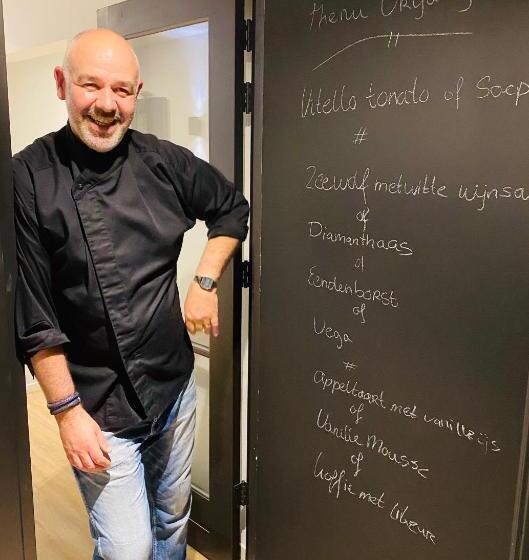 Menu
Vitello tonato of Soep
#
Zeewolf met witte wijnsa
of
Diamanthaas
of
Eendenborst
of
Vega
#
Appeltaart met vanilleijs
of
Vanille Mousse
of
koffie met likeur